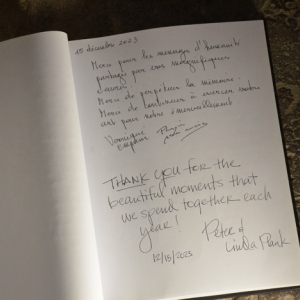 15 décembre 2023
Merci pour les messages d'humanité
partagés par vos magnifiques
œuvres.
Merci de perpétuer la mémoire.
Merci de continuer à exercer votre
art pour notre émerveillement
Véronique
THANK YOU for the
beautiful moments that
we spend together each
year!
Peter &
Linda Plank
12/15/2023